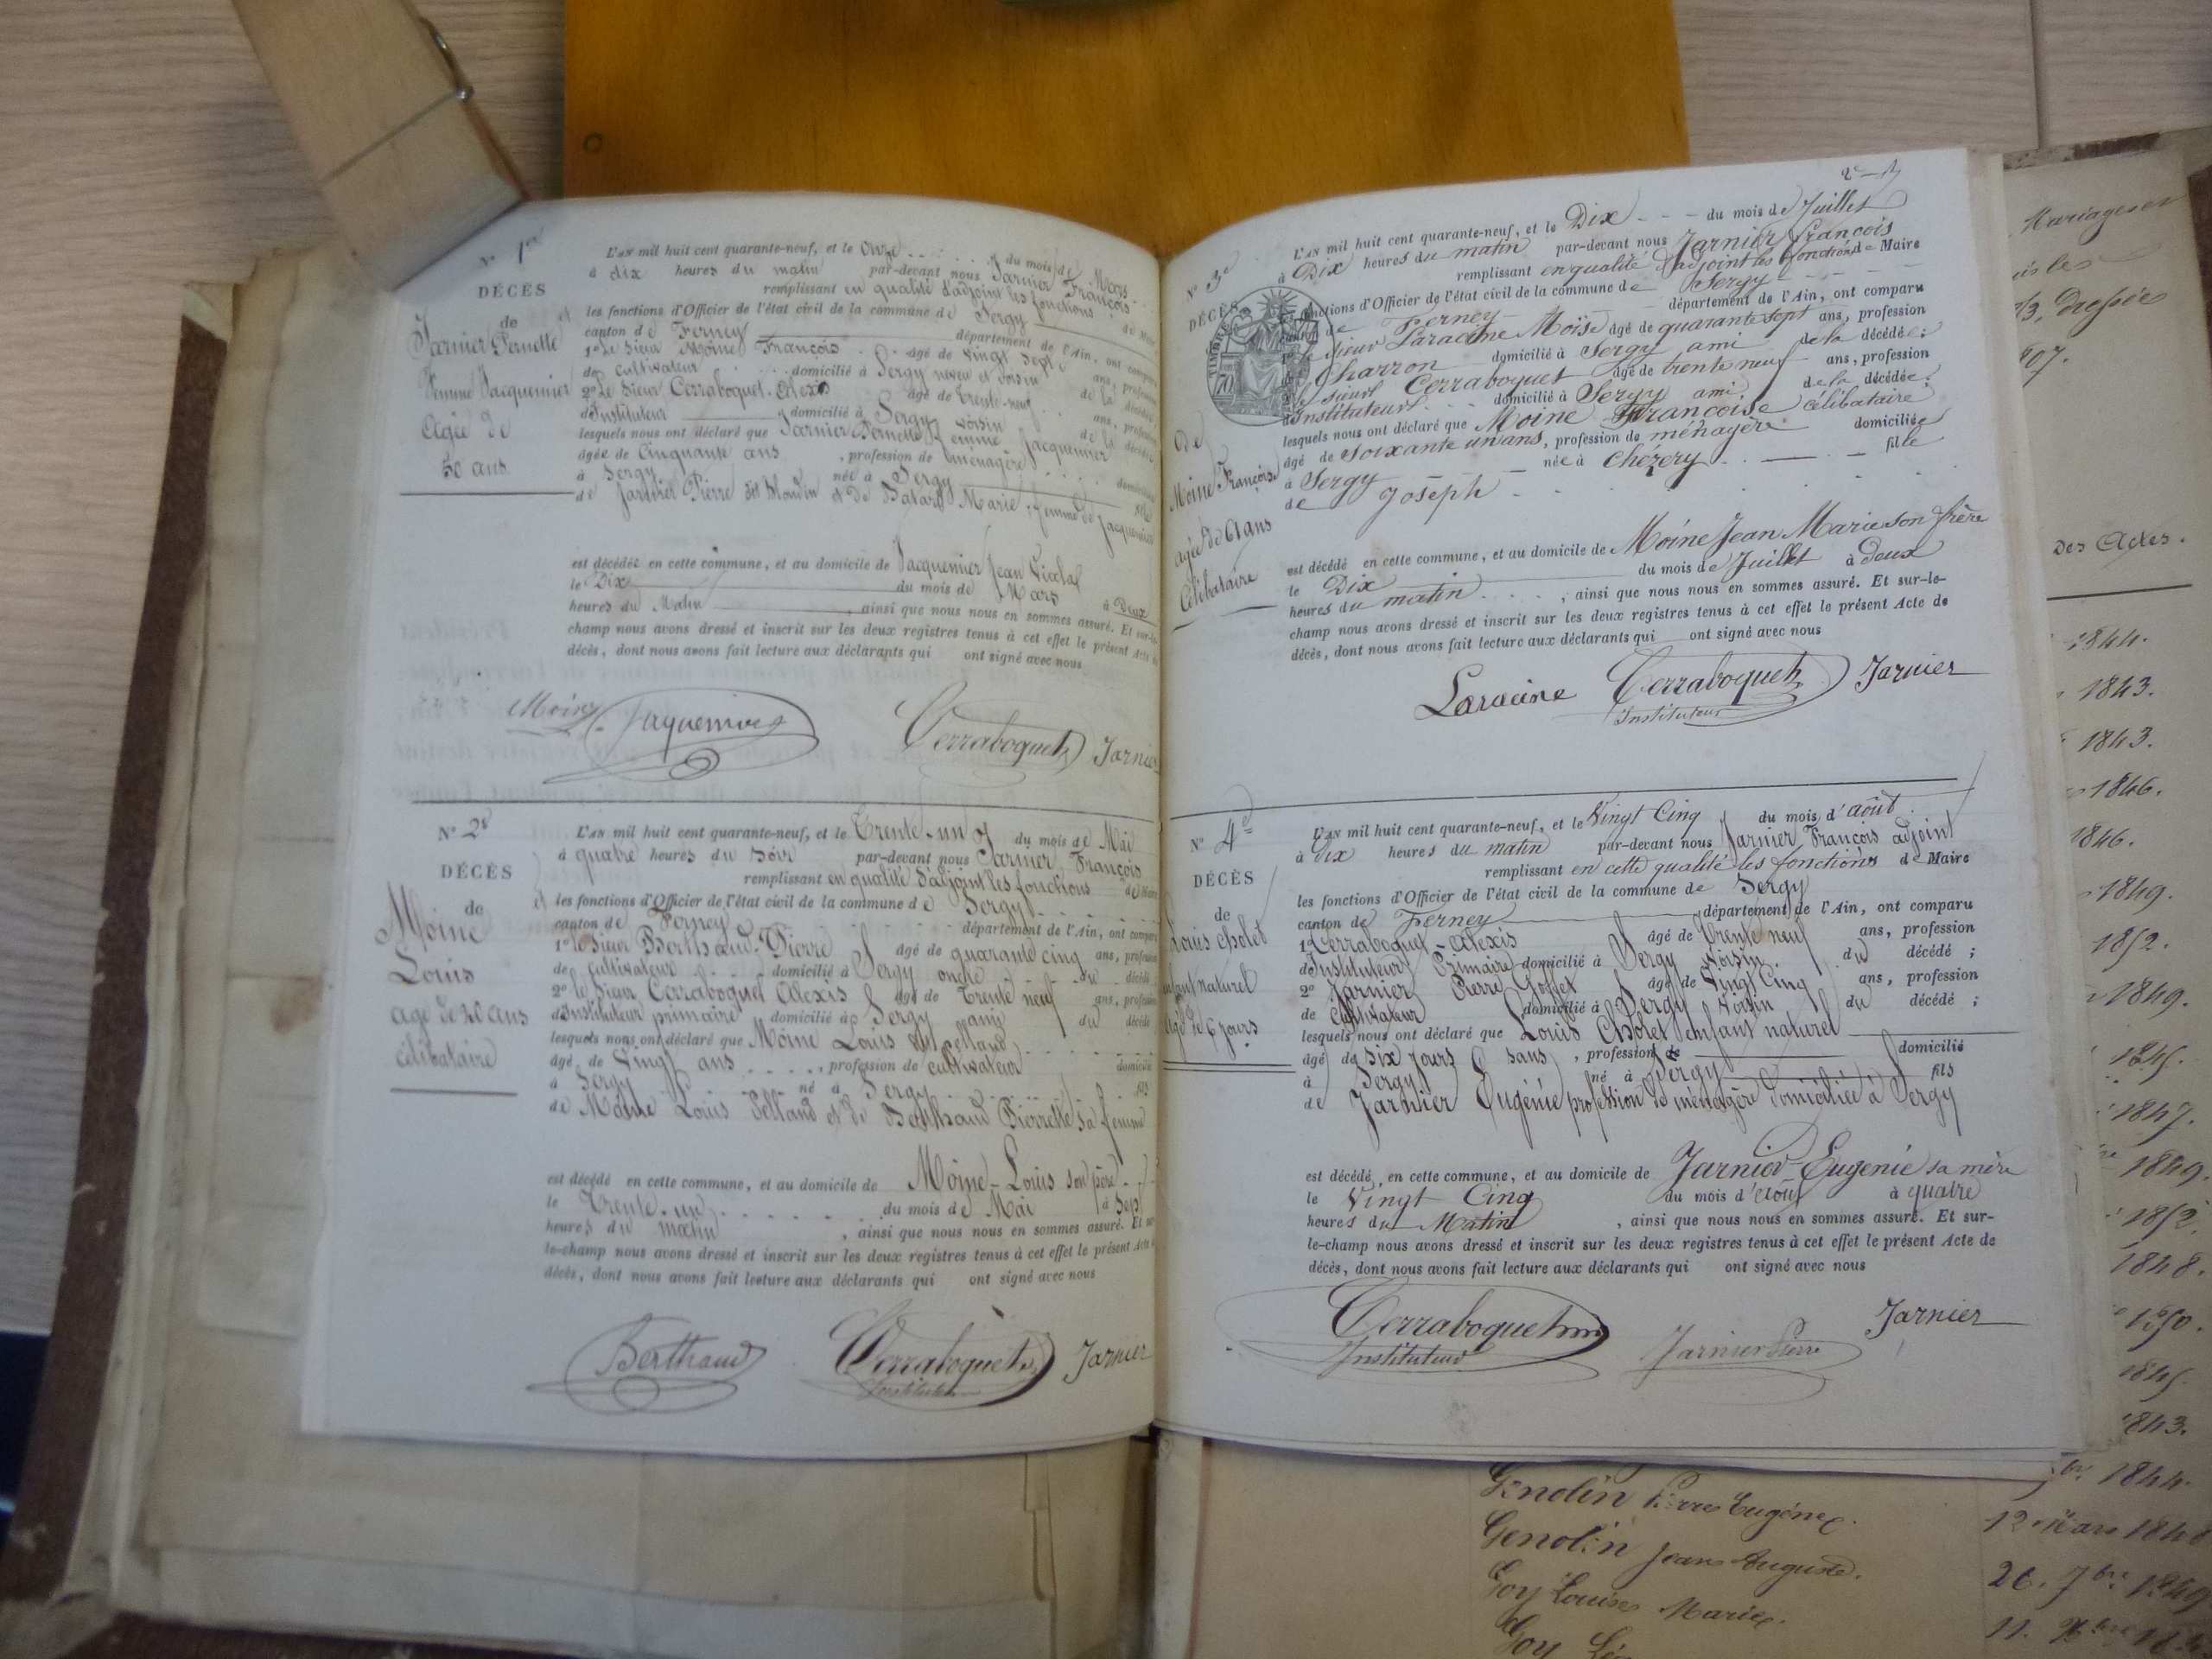 N° 1er
DÉCÈS
de
Jarnier Pernette
Femme Jacquemier
Agée de
50 ans
L'AN mil huit cent quarante-neuf, et le onze du mois de Mars
à dix heures du matin par-devant nous Jarnier François
remplissant en qualité d'adjoint les fonctions de Maire
et les fonctions d'Officier de l'état civil de la commune de Sergy
canton de Ferney département de l'Ain, ont comparu
1° Le Sieur Moine François âgé de vingt sept ans, profession
de cultivateur domicilié à Sergy neveu et voisin de la décédée
2° Le Sieur Cerraboquet Alexis âgé de trente-neuf ans, profession
d'Instituteur domicilié à Sergy voisin de la décédée
lesquels nous ont déclaré que Jarnier Pernette Femme Jacquemier
âgée de Cinquante ans, profession de ménagère domiciliée
à Sergy née à Sergy fille
de Jarnier Pierre dit et de Marie, femme de Jacquemier
est décédée en cette commune, et au domicile de Jacquemier Jean Nicolas
le Dix du mois de Mars à Deux
heures du Matin, ainsi que nous nous en sommes assuré. Et sur-le-
champ nous avons dressé et inscrit sur les deux registres tenus à cet effet le présent Acte de
décès, dont nous avons fait lecture aux déclarants qui ont signé avec nous
Moine Jaquemier Cerraboquet Jarnier
N° 2e
DÉCÈS
de
Moine
Louis
agé de 20 ans
célibataire
L'AN mil huit cent quarante-neuf, et le Trente-un du mois de Mai
à quatre heures du Soir par-devant nous Jarnier François
remplissant en qualité d'adjoint les fonctions de Maire
et les fonctions d'Officier de l'état civil de la commune de Sergy
canton de Ferney département de l'Ain, ont comparu
1° le Sieur Berthaud Pierre âgé de quarante cinq ans, profession
de cultivateur domicilié à Sergy oncle du décédé
2° le Sieur Cerraboquet Alexis âgé de Trente neuf ans, profession
d'Instituteur primaire domicilié à Sergy ami du décédé
lesquels nous ont déclaré que Moine Louis
âgé de Vingt ans, profession de cultivateur domicilié
à Sergy né à Sergy fils
de Moine Louis et de Berthaud Pierrette sa femme
est décédé en cette commune, et au domicile de Moine Louis son père
le Trente-un du mois de Mai à Sept
heures du matin, ainsi que nous nous en sommes assuré. Et sur-
le-champ nous avons dressé et inscrit sur les deux registres tenus à cet effet le présent Acte de
décès, dont nous avons fait lecture aux déclarants qui ont signé avec nous
Berthaud Cerraboquet Jarnier
Instituteur
N° 3e
DÉCÈS
TIMBRE
70
de
Moine Françoise
agée de 61 ans
Célibataire
L'AN mil huit cent quarante-neuf, et le Dix du mois de Juillet
à Dix heures du matin par-devant nous Jarnier François
remplissant en qualité d'adjoint les fonctions de Maire
fonctions d'Officier de l'état civil de la commune de Sergy
de Ferney département de l'Ain, ont comparu
le Sieur Laracine Moïse âgé de quarante sept ans, profession
Charron domicilié à Sergy ami de la décédée;
le sieur Cerraboquet âgé de trente neuf ans, profession
d'Instituteur domicilié à Sergy ami de la décédée;
lesquels nous ont déclaré que Moine Françoise célibataire
âgé de soixante un ans, profession de ménagère domiciliée
à Sergy née à Chézery fille
de Joseph
est décédé en cette commune, et au domicile de Moine Jean Marie son frère
le Dix du mois de Juillet à Deux
heures du matin, ainsi que nous nous en sommes assuré. Et sur-le-
champ nous avons dressé et inscrit sur les deux registres tenus à cet effet le présent Acte de
décès, dont nous avons fait lecture aux déclarants qui ont signé avec nous
Laracine Cerraboquet Jarnier
Instituteur
N° 4e
DÉCÈS
de
Louis Cholet
enfant naturel
Agé de 6 jours
L'AN mil huit cent quarante-neuf, et le Vingt Cinq du mois d'août
à dix heures du matin par-devant nous Jarnier François adjoint
remplissant en cette qualité les fonctions de Maire
les fonctions d'Officier de l'état civil de la commune de Sergy
canton de Ferney département de l'Ain, ont comparu
1° Cerraboquet Alexis âgé de Trente neuf ans, profession
d'Instituteur Primaire domicilié à Sergy Voisin du décédé;
2° Jarnier Pierre Goffet âgé de Vingt Cinq ans, profession
de Cultivateur domicilié à Sergy Voisin du décédé;
lesquels nous ont déclaré que Louis Cholet enfant naturel
âgé de six jours sans, profession de domicilié
à Sergy né à Sergy fils
de Jarnier Eugénie profession de ménagère domiciliée à Sergy
est décédé, en cette commune, et au domicile de Jarnier Eugenie sa mère
le Vingt Cinq du mois d'août à quatre
heures du Matin, ainsi que nous nous en sommes assuré. Et sur-
le-champ nous avons dressé et inscrit sur les deux registres tenus à cet effet le présent Acte de
décès, dont nous avons fait lecture aux déclarants qui ont signé avec nous
Cerraboquet Jarnier Pierre Jarnier
Instituteur
Mariages et
Des Actes.
1844.
1843.
1843.
1846.
1846.
1849.
1852.
1849.
1845.
1847.
1849.
1852.
1848.
1850.
1845.
1843.
1844.
Genolin Pierre Eugène.
12 Mars 184
Genolin Jean Auguste.
26. 7bre 1849
Goy Louise Marie.
11.
Goy